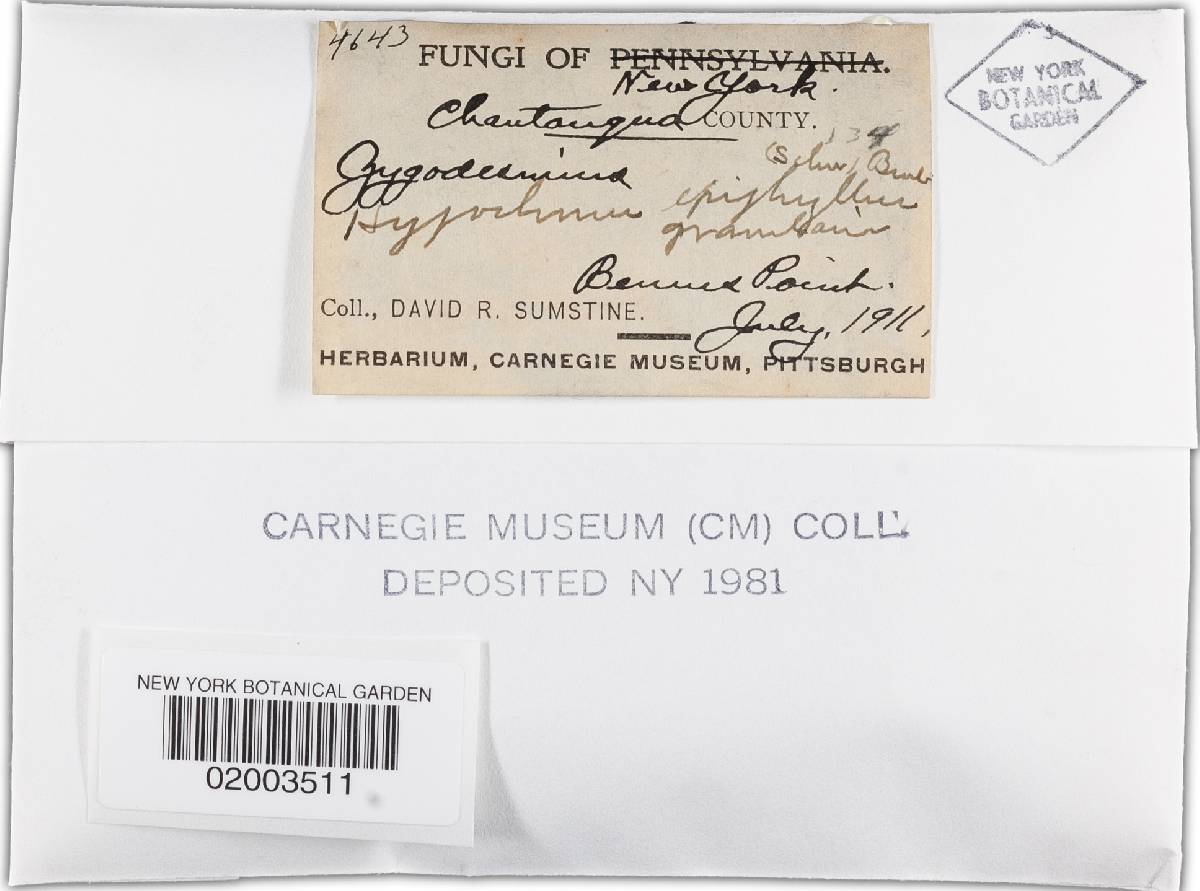 4643
FUNGI OF PENNSYLVANIA.
New York.
Chautauqua COUNTY.
134
(Schw) Burt
Zygodesmus
Hypochnus epiphyllus
Bemus Point.
Coll., DAVID R. SUMSTINE.
July, 1911.
HERBARIUM, CARNEGIE MUSEUM, PITTSBURGH
NEW YORK
BOTANICAL
GARDEN
CARNEGIE MUSEUM (CM) COLL.
DEPOSITED NY 1981
NEW YORK BOTANICAL GARDEN
02003511